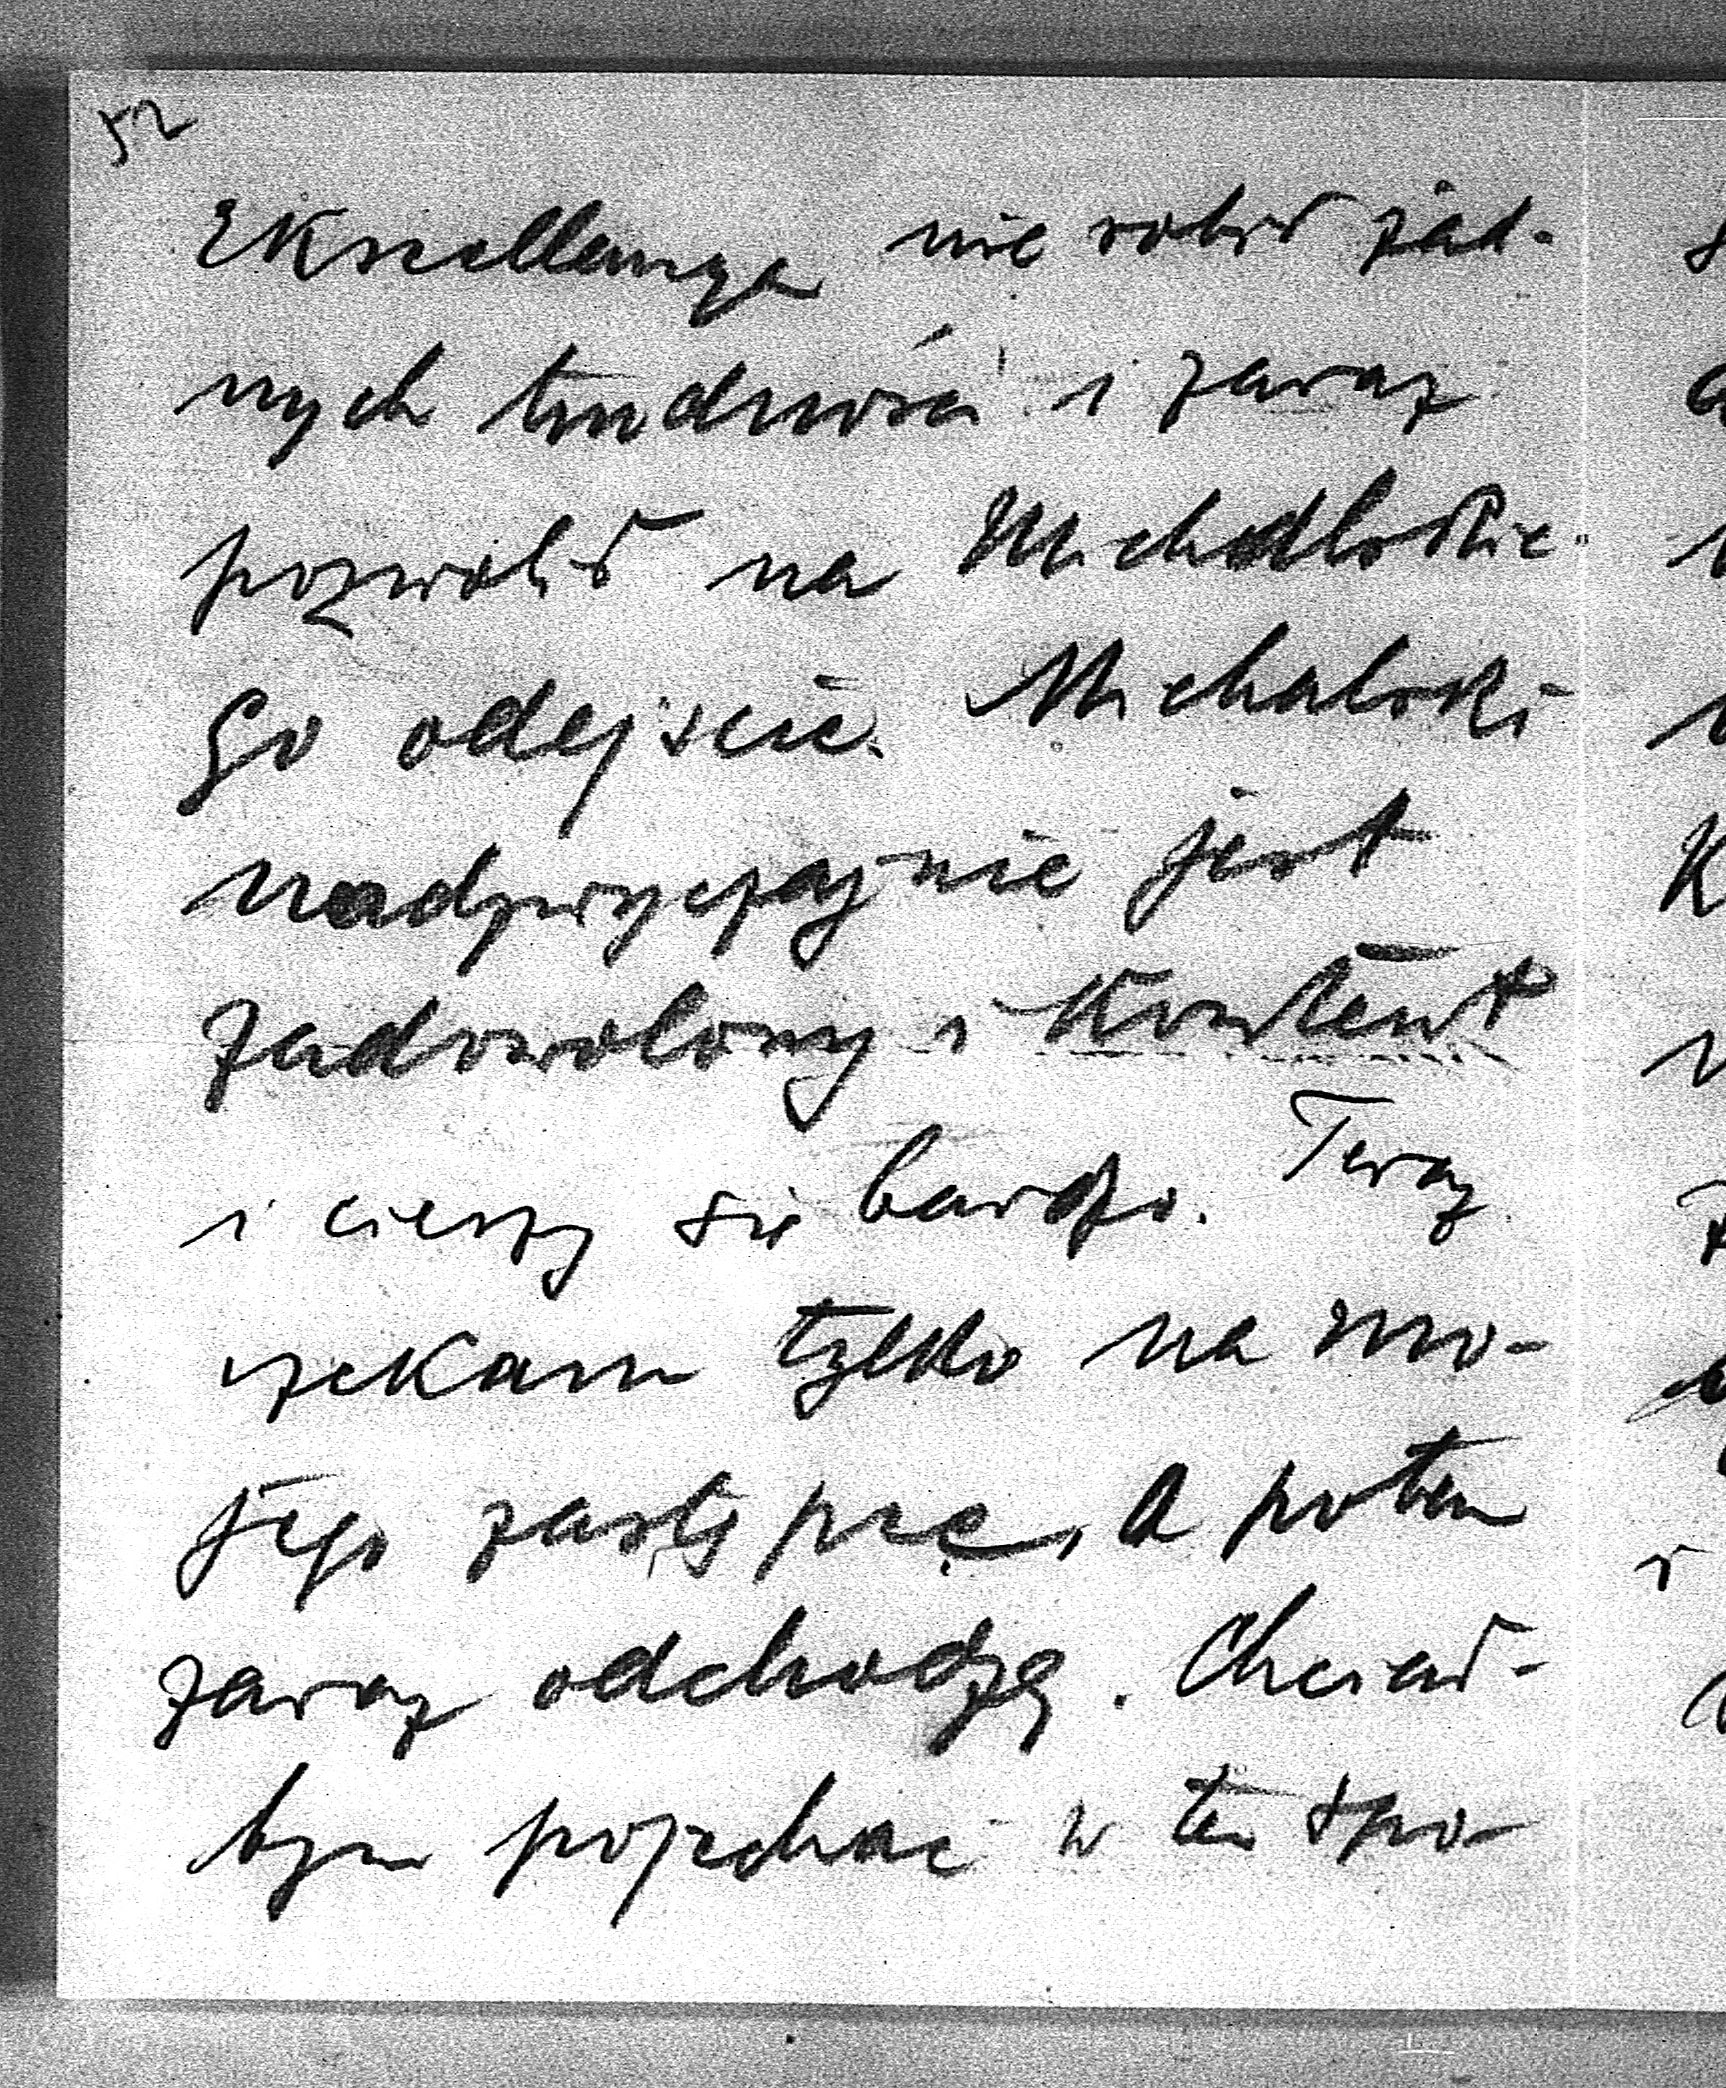 52
Ekscellencya nie robił żad-
nych trudności i zaraz
pozwolił na Michalskie-
go odejście. Michalski
nadzwyczajnie jest
zadowolony i kontent
i cieszy się bardzo. Teraz
czekam tylko na mo-
jego zastępcę, a potem
zaraz odchodzę. Chciał-
bym pojechać w ten spo-